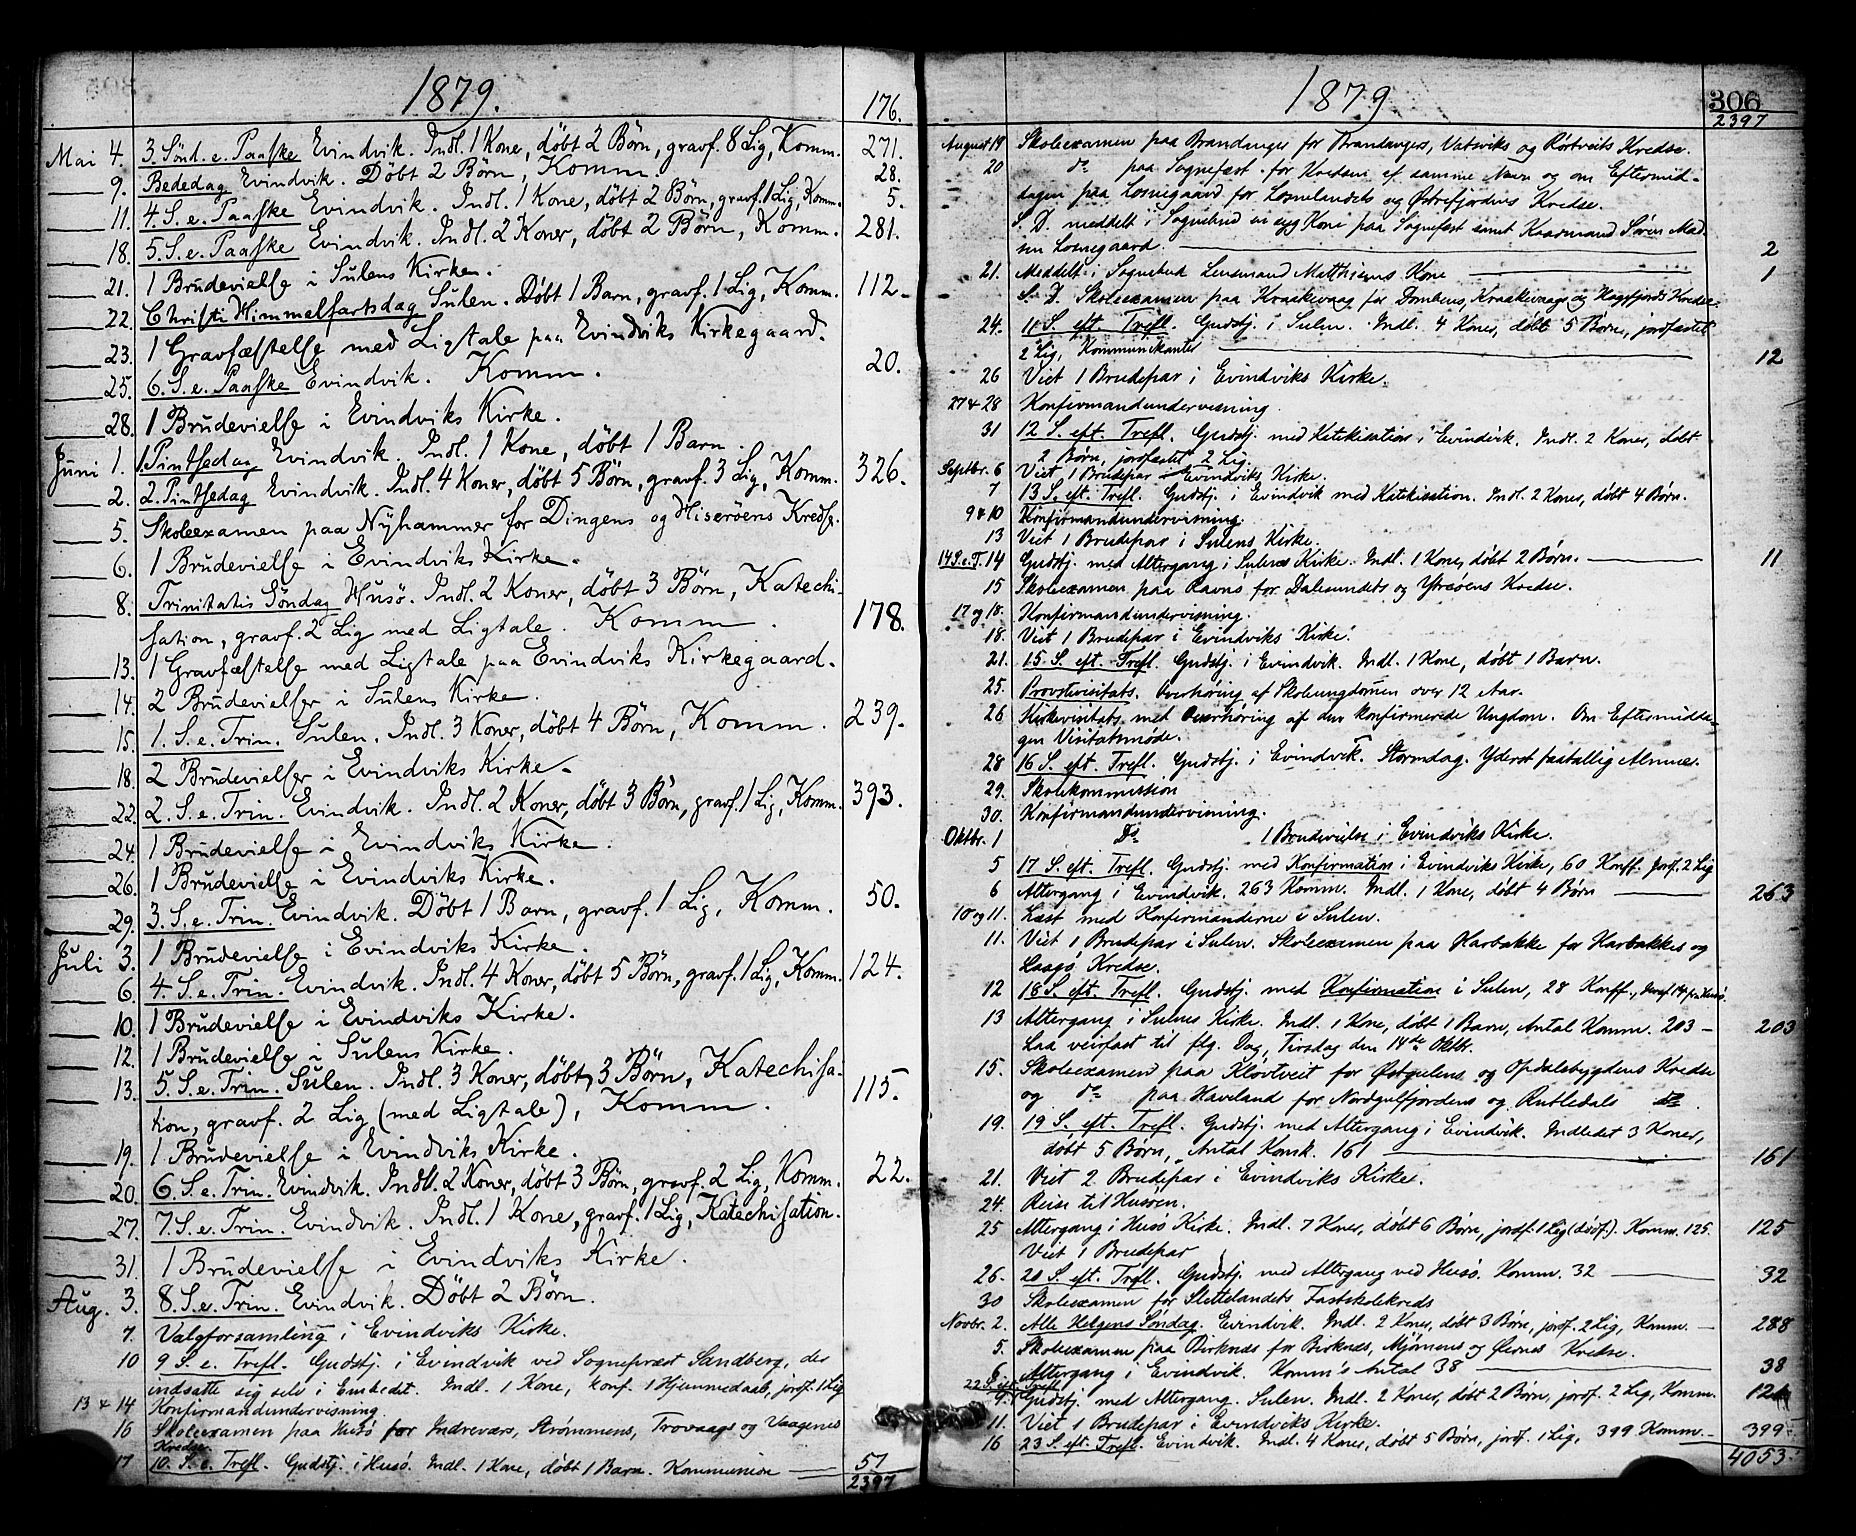 1879.
176.
Mai 4. 3. Sønd. e. Paaske Evindvik. Indl. 1 Kone, døbt 2 Børn, gravf. 8 Lig, Komm. 271.
9. Bededag Evindvik. Døbt 2 Børn, Komm. 28.
11. 4. S. e. Paaske Evindvik. Indl. 1 Kone, døbt 2 Børn, gravf. 1 Lig, Komm. 5.
18. 5. S. e. Paaske Evindvik. Indl. 2 Koner, døbt 2 Børn, Komm. 281.
21. 1 Brudevielse i Sulens Kirke.
22. Christi Himmelfartsdag Sulen. Døbt 1 Barn, gravf. 1 Lig, Komm. 112.
23. 1 Gravfæstelse med Ligtale paa Evindviks Kirkegaard.
25. 6. S. e. Paaske Evindvik. Komm. 20.
28. 1 Brudevielse i Evindviks Kirke.
Juni 1. 1. Pintsedag Evindvik. Indl. 1 Kone, døbt 1 Barn.
2. 2. Pintsedag Evindvik. Indl. 4 Koner, døbt 5 Børn, gravf. 3 Lig, Komm. 326.
5. Skoleexamen paa Nyhammer for Dingens og Hiserøens Kredse.
6. 1 Brudevielse i Evindviks Kirke.
8. Trinitatis Søndag Husø. Indl. 2 Koner, døbt 3 Børn, Katechi-
sation, gravf. 2 Lig med Ligtale. Komm. 178.
13. 1 Gravfæstelse med Ligtale paa Evindviks Kirkegaard.
14. 2 Brudevielser i Sulens Kirke.
15. 1. S. e. Trin. Sulen. Indl. 3 Koner, døbt 4 Børn, Komm. 239.
18. 2 Brudevielser i Evindviks Kirke.
22. 2. S. e. Trin. Evindvik. Indl. 2 Koner, døbt 3 Børn, gravf. 1 Lig, Komm. 393.
24. 1 Brudevielse i Evindviks Kirke.
26. 1 Brudevielse i Evindviks Kirke.
29. 3. S. e. Trin. Evindvik. Døbt 1 Barn, gravf. 1 Lig, Komm. 50.
Juli 3. 1 Brudevielse i Evindviks Kirke.
6. 4. S. e. Trin. Evindvik. Indl. 4 Koner, døbt 5 Børn, gravf. 1 Lig, Komm. 124.
10. 1 Brudevielse i Evindviks Kirke.
12. 1 Brudevielse i Sulens Kirke.
13. 5. S. e. Trin. Sulen. Indl. 3 Koner, døbt 3 Børn, Katechisa-
tion, gravf. 2 Lig (med Ligtale), Komm. 115.
19. 1 Brudevielse i Evindviks Kirke.
20. 6. S. e. Trin. Evindvik. Indl. 2 Koner, døbt 3 Børn, gravf. 2 Lig, Komm. 22.
27. 7. S. e. Trin. Evindvik. Indl. 1 Kone, gravf. 1 Lig, Katechisation.
31. 1 Brudevielse i Evindviks Kirke.
Aug. 3. 8. S. e. Trin. Evindvik. Døbt 2 Børn.
7. Valgforsamling i Evindviks Kirke.
10 9 S. e. Trefl. Gudstj. i Evindvik ved Sognepræst Sandberg, der
indsatte sig selv i Embedet. Indl. 1 Kone, konf. 1 Hjemmedaab, jordf. 1 Lig
13 & 14 Konfirmandundervisning
16 Skoleexamen paa Husø for Indreværs, Strømmens, Trovaags og Vaagenes
Kredse.
17 10. S. e. Trefl. Gudstj. i Husø. Indl. 1 Kone, døbt 1 Barn. Kommunion 57
2397
1879
306
2397
August 19 Skoleexamen paa Brandanger for Brandangers, Vatsviks og Rørtveits Kredse.
20 do paa Sognefæst for Kredsen af samme Navn og om Eftermid-
dagen paa Losnegaard for Losnelandets og Østrefjordnes Kredse.
S. D. meddelt i Sognebud en syg Kone paa Sognefæst samt Kaarmand Søren Mad-
sen Losnegaard. 2
21. Meddelt i Sognebud Lensmand Matthisens Kone 1
S. D. Skoleexamen paa Kraakevaag for Dombens, Kraakevaags og Høgsfjords Kredse.
24. 11 S. eft. Trefl. Gudstj. i Sulen. Indl. 4 Koner, døbt 5 Børn, jordfæstet
2 Lig, Kommunikanter 12
26 Viet 1 Brudepar i Evindviks Kirke.
27 & 28 Konfirmandundervisning.
31 12 S. eft. Trefl. Gudstj. med Katekisation i Evindvik. Indl. 2 Koner, døbt
2 Børn, jordfæstet 2 Lig.
Septbr. 6 Viet 1 Brudepar i Evindviks Kirke.
7 13 S. eft. Trefl. Gudstj. i Evindvik med Katekisation. Indl. 2 Koner, døbt 4 Børn.
9 & 10 Konfirmandundervisning.
13 Viet 1 Brudepar i Sulens Kirke.
14 S. e. T. 14 Gudstj. med Altergang i Sulens Kirke. Indl. 1 Kone, døbt 2 Børn. 11
15 Skoleexamen paa Ravnø for Dalesundets og Ytreøens Kredse.
17 og 18. Konfirmandundervisning.
18. Viet 1 Brudepar i Evindviks Kirke.
21. 15. S. eft. Trefl. Gudstj. i Evindvik. Indl. 1 Kone, døbt 1 Barn.
25. Provstevisitats. Overhøring af Skoleungdommen over 12 Aar.
26 Kirkevisitats med Overhøring af den konfirmerede Ungdom. Om Eftermidda-
gen Visitatsmøde.
28 16 S. eft. Trefl. Gudstj. i Evindvik. Stormdag. Yderst faatallig Almue.
29. Skolekommission
30. Konfirmandundervisning.
Oktbr. 1 Do 1 Brudevielse i Evindviks Kirke.
5 17 S. eft. Trefl. Gudstj. med Konfirmation i Evindviks Kirke, 60 Konff. Jordf. 2 Lig
6 Altergang i Evindvik. 263 Komm. Indl. 1 Kone, døbt 4 Børn 263
10 og 11. Læst med Konfirmanderne i Sulen.
11. Viet 1 Brudepar i Sulen. Skoleexamen paa Harbakke for Harbakkes og
Laagø Kredse.
12 18 S. eft. Trefl. Gudstj. med Konfirmation i Sulen, 28 Konff., deraf 14 fra Husø.
13 Altergang i Sulens Kirke. Indl. 1 Kone, døbt 1 Barn, Antal Komm. 203 - 203
Laa veirfast til flg. Dag, Tirsdag den 14de Oktbr.
15. Skoleexamen paa Kløvtveit for Østgulens og Opdalsbygdens Kredse
og do paa Haveland for Nordgulfjordens og Rutledals do
19. 19 S. eft. Trefl. Gudstj. med Altergang i Evindvik. Indledet 3 Koner,
døbt 5 Børn, Antal Komk. 161 161
21. Viet 2 Brudepar i Evindviks Kirke.
24. Reise til Husøen.
25 Altergang i Husø Kirke. Indl. 7 Koner, døbt 6 Børn, jordf. 1 Lig (dødf.). Komm. 125. 125
Viet 1 Brudepar
26. 20 S. eft. Trefl. Gudstj. med Altergang ved Husø. Komm. 32 32
30 Skoleexamen for Slettelandets Fastskolekreds
Novbr. 2. Alle Helgens Søndag. Evindvik. Indl. 2 Koner, døbt 3 Børn, jordf. 2 Lig, Komm. 288
5. Skoleexamen paa Birknæs for Birknæs, Mjømens og Øernes Kredse.
6 Altergang i Evindvik. Komm's Antal 38 38
22 S. eft. Trefl. 9. Gudstj. med Altergang. Sulen. Indl. 2 Koner, døbt 2 Børn, jordf. 2 Lig, Komm.
11. Viet 1 Brudepar i Evindviks Kirke.
16 23 S. eft. Trefl. Evindvik. Indl. 4 Koner, døbt 5 Børn, jordf. 1 Lig, 399 Komm. 399
4053